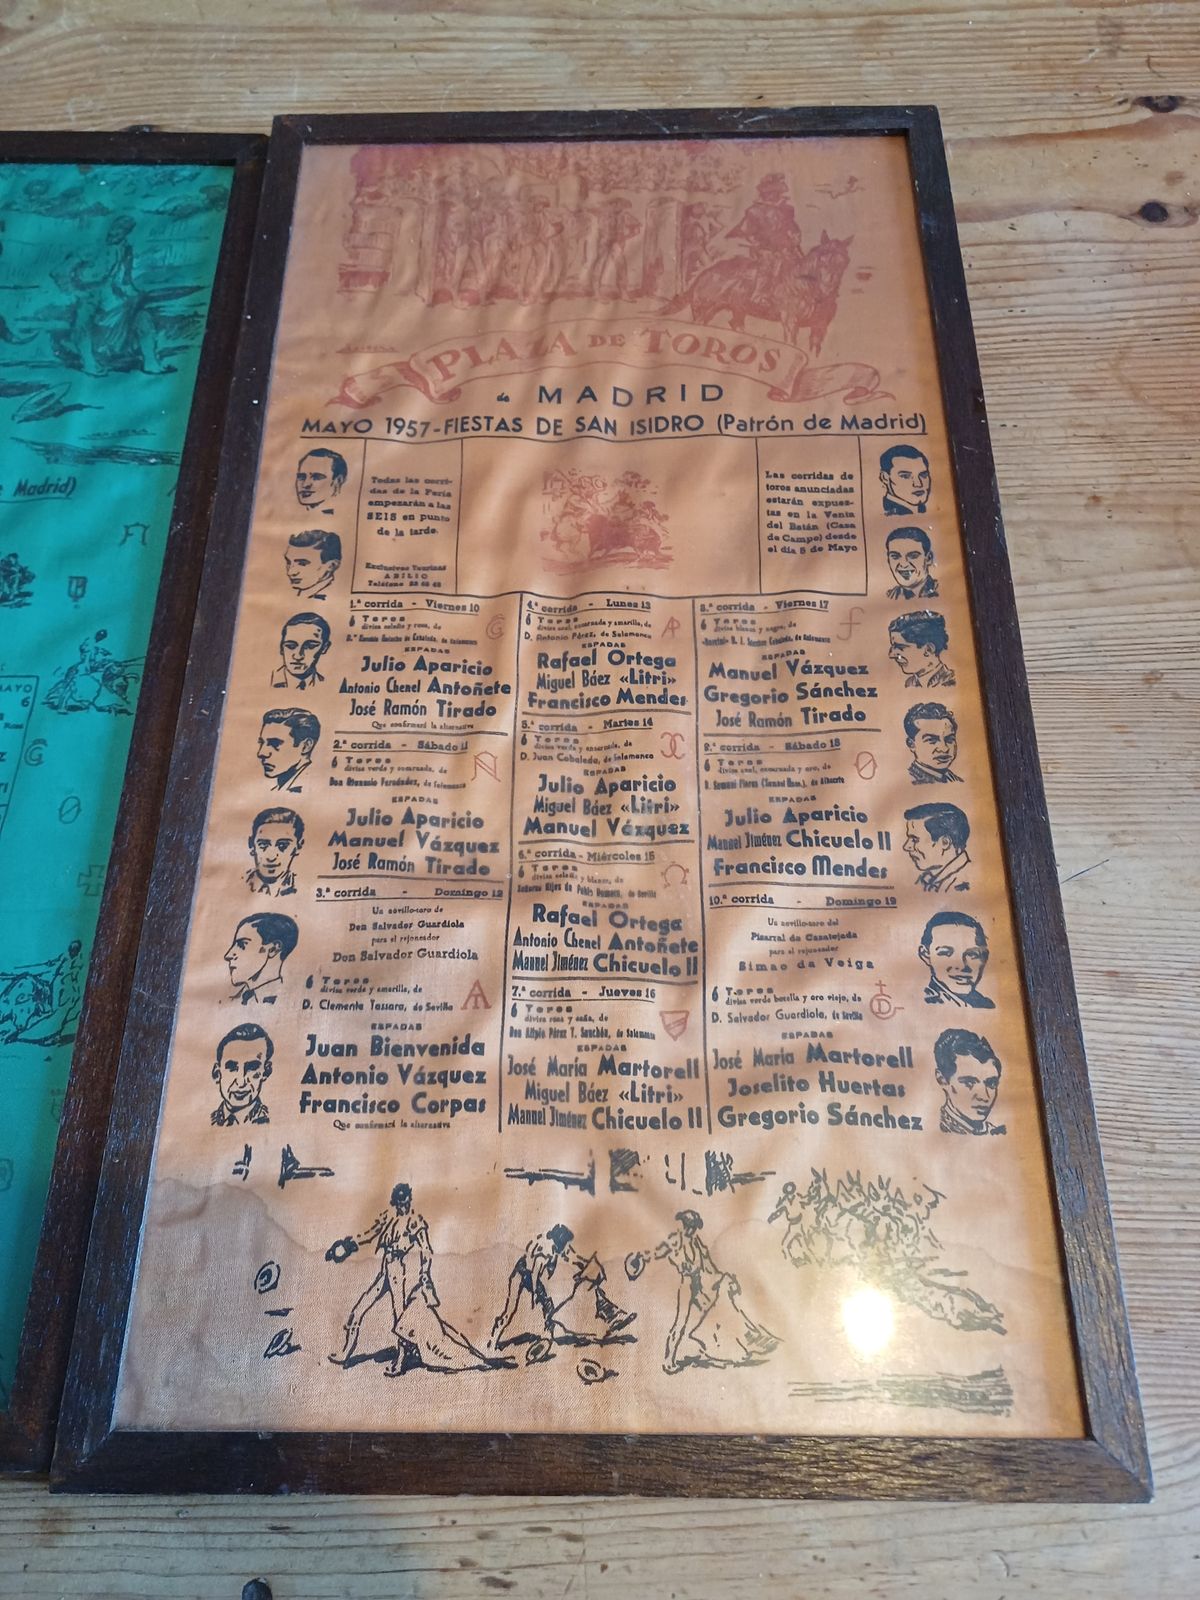 PLAZA DE TOROS
de MADRID
MAYO 1957-FIESTAS DE SAN ISIDRO (Patrón de Madrid)
Todas las corri-
das de la Feria
empezarán a las
SEIS en punto
de la tarde.
Exclusivas Taurinas
ABILIO
Teléfono
Las corridas de
toros anunciadas
estarán expues-
tas en la Venta
del Batán (Casa
de Campo) desde
el día 5 de Mayo
1.ª corrida - Viernes 10
6 Toros
divisa celeste y rosa, de
de Cobaleda, de Salamanca
ESPADAS
Julio Aparicio
Antonio Chenel Antoñete
José Ramón Tirado
Que confirmará la alternativa
2.ª corrida - Sábado 11
6 Toros
divisa verde y encarnada, de
Don Atanasio Fernández, de Salamanca
ESPADAS
Julio Aparicio
Manuel Vázquez
José Ramón Tirado
3.ª corrida - Domingo 12
Un novillo-toro de
Don Salvador Guardiola
para el rejoneador
Don Salvador Guardiola
6 Toros
divisa verde y amarilla, de
D. Clemente Tassara, de Sevilla
ESPADAS
Juan Bienvenida
Antonio Vázquez
Francisco Corpas
Que confirmará la alternativa
4.ª corrida - Lunes 13
6 Toros
divisa azul, encarnada y amarilla, de
D. Antonio Pérez, de Salamanca
ESPADAS
Rafael Ortega
Miguel Báez «Litri»
Francisco Mendes
5.ª corrida - Martes 14
6 Toros
divisa verde y encarnada, de
D. Juan Cobaleda, de Salamanca
ESPADAS
Julio Aparicio
Miguel Báez «Litri»
Manuel Vázquez
6.ª corrida - Miércoles 15
6 Toros
divisa celeste y blanca, de
Señores Hijos de Pablo Romero, de Sevilla
ESPADAS
Rafael Ortega
Antonio Chenel Antoñete
Manuel Jiménez Chicuelo II
7.ª corrida - Jueves 16
6 Toros
divisa rosa y caña, de
Don Alipio Pérez T. Sanchón, de Salamanca
ESPADAS
José María Martorell
Miguel Báez «Litri»
Manuel Jiménez Chicuelo II
8.ª corrida - Viernes 17
6 Toros
divisa blanca y negra, de
Cobaleda, de Salamanca
ESPADAS
Manuel Vázquez
Gregorio Sánchez
José Ramón Tirado
9.ª corrida - Sábado 18
6 Toros
divisa azul, encarnada y oro, de
D. Samuel Flores (Samuel Hnos.), de Albacete
ESPADAS
Julio Aparicio
Manuel Jiménez Chicuelo II
Francisco Mendes
10.ª corrida - Domingo 19
Un novillo-toro del
Pizarral de Casatejada
para el rejoneador
Simao da Veiga
6 Toros
divisa verde botella y oro viejo, de
D. Salvador Guardiola, de Sevilla
ESPADAS
José María Martorell
Joselito Huertas
Gregorio Sánchez
Madrid)
MAYO
6